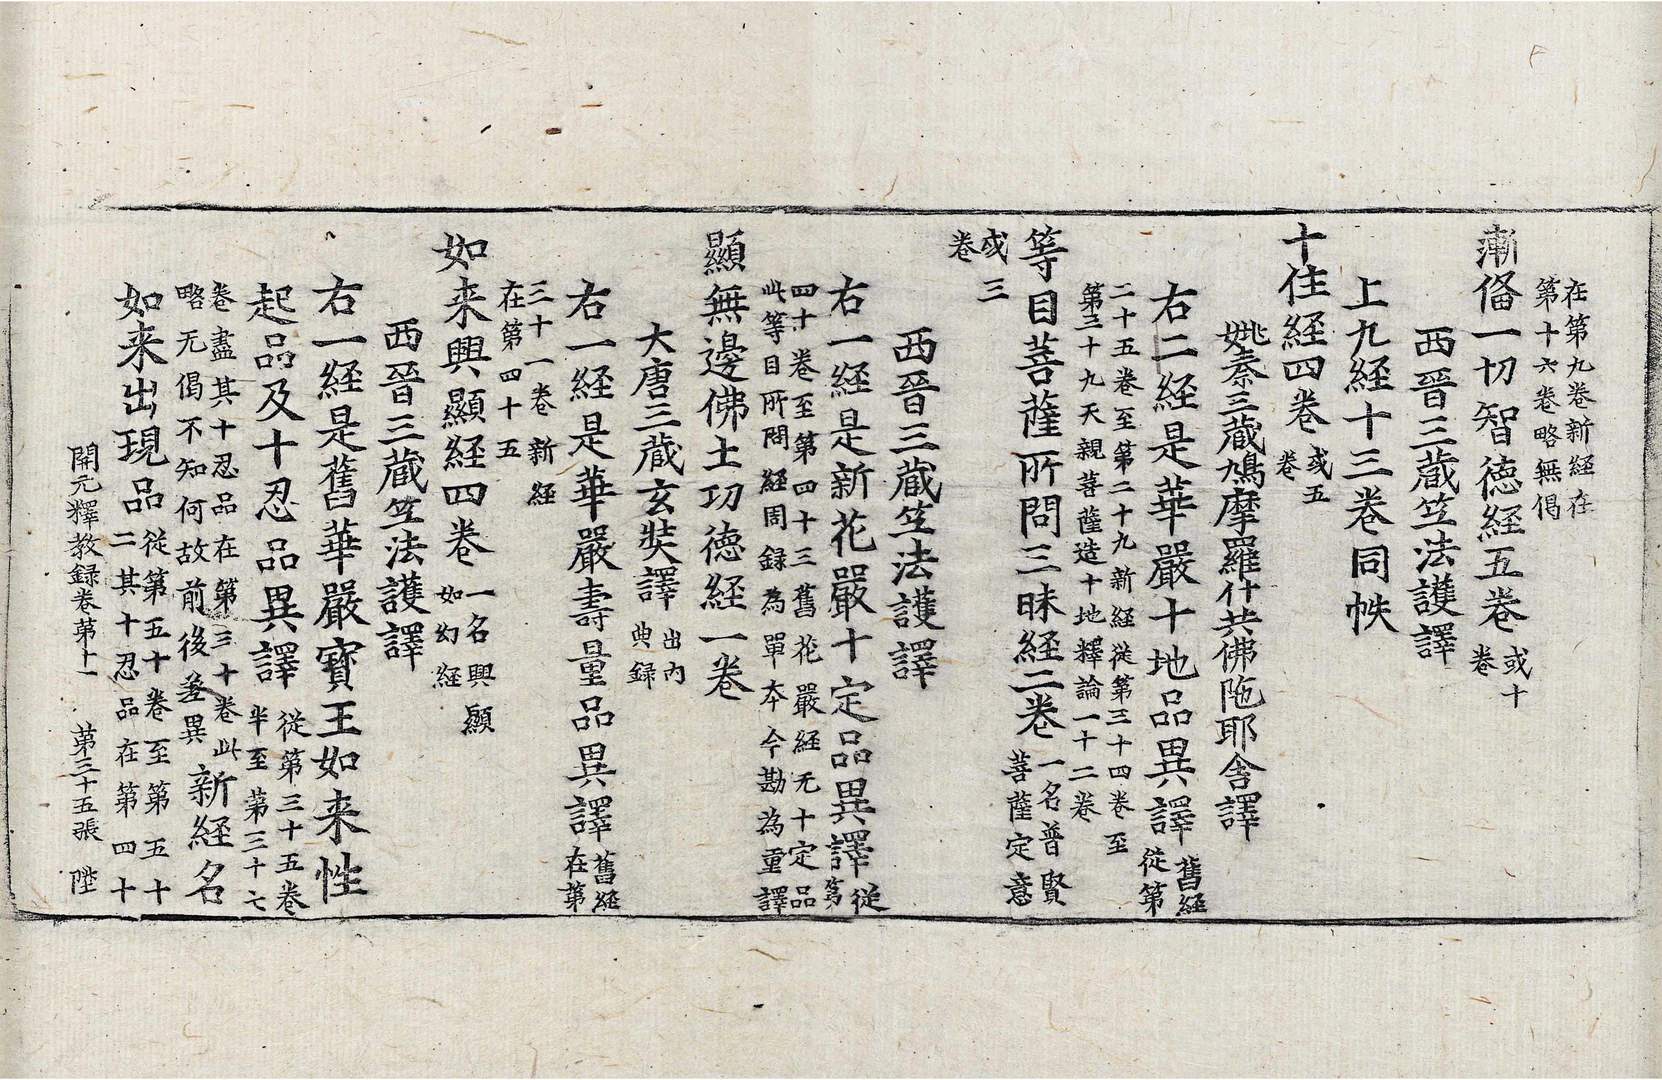 在第九卷新経在
第十六卷略無偈
漸俻一切智德経五卷或十卷
西晉三藏竺法護譯
上九経十三卷同帙
十住経四卷或五卷
姚秦三藏鳩摩羅什共佛陁耶舍譯
右二経是華嚴十地品異譯舊経從第
二十五卷至第二十九新経從第三十四卷至
第三十九天親菩薩造十地釋論一十二卷
等目菩薩所問三昧経二卷一名普賢菩薩定意
或三卷
西晉三藏竺法護譯
右一経是新花嚴十定品異譯從第
四十卷至第四十三舊花嚴経无十定品
此等目所問経周錄為單夲今勘為重譯
顯無邊佛土功德経一卷
大唐三藏玄奘譯出內典録
右一経是華嚴壽量品異譯舊経在第
三十一卷新経
在第四十五
如来興顯経四卷一名興顯如幻経
西晉三藏竺法護譯
右一経是舊華嚴寳王如来性
起品及十忍品異譯從第三十五卷半至第三十七
卷盡其十忍品在第三十卷此
略无偈不知何故前後差異新経名
如来出現品從第五十卷至第五十二其十忍品在第四十
開元釋教録卷第十一 第三十五張 陛